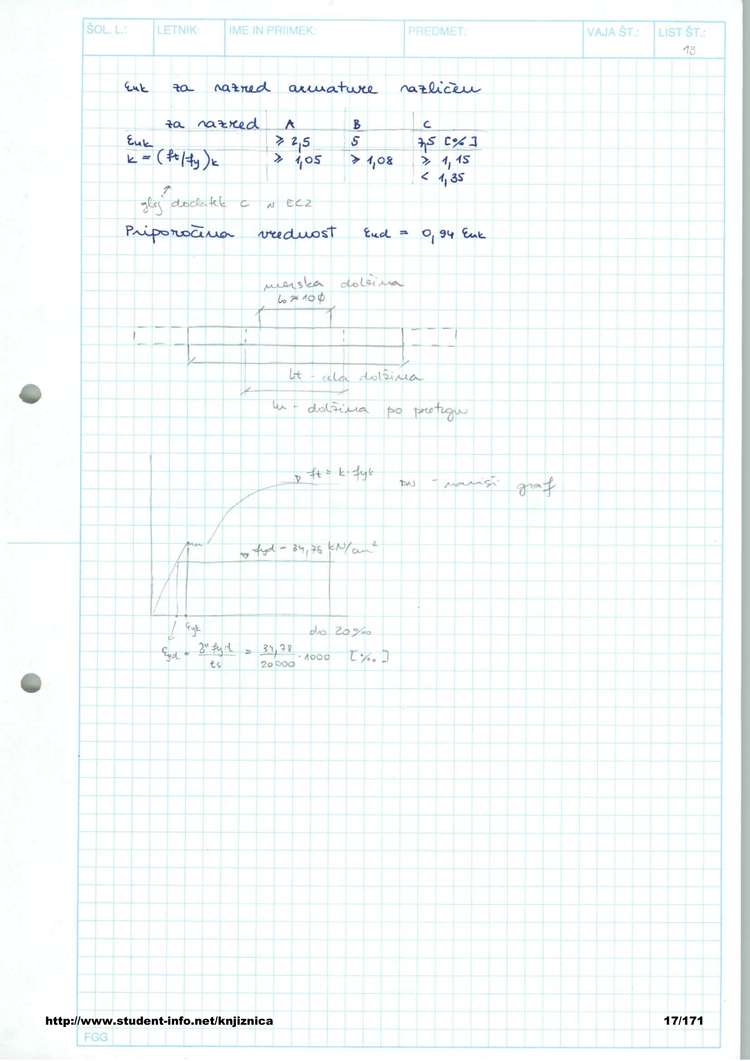 ŠOL. L.: LETNIK: IME IN PRIIMEK: PREDMET: VAJA ŠT.: LIST ŠT.:
13
εuk za razred armature različen
za razred A B C
εuk ≥ 2,5 5 7,5 [%]
k = (ft/fy)k ≥ 1,05 ≥ 1,08 ≥ 1,15
< 1,35
glej dodatek C v EC2
Priporočena vrednost εud = 0,94 εuk
merska dolžina
lo ≈ 10ϕ
lt - cela dolžina
lu - dolžina po pretrgu
ft = k · fyk
DN - nariši graf
fyd = 34,78 kN/cm²
εyk
do 20‰
εyd = fyd / = 34,78 / 20000 · 1000 [‰]
http://www.student-info.net/knjiznica 17/171
FGG